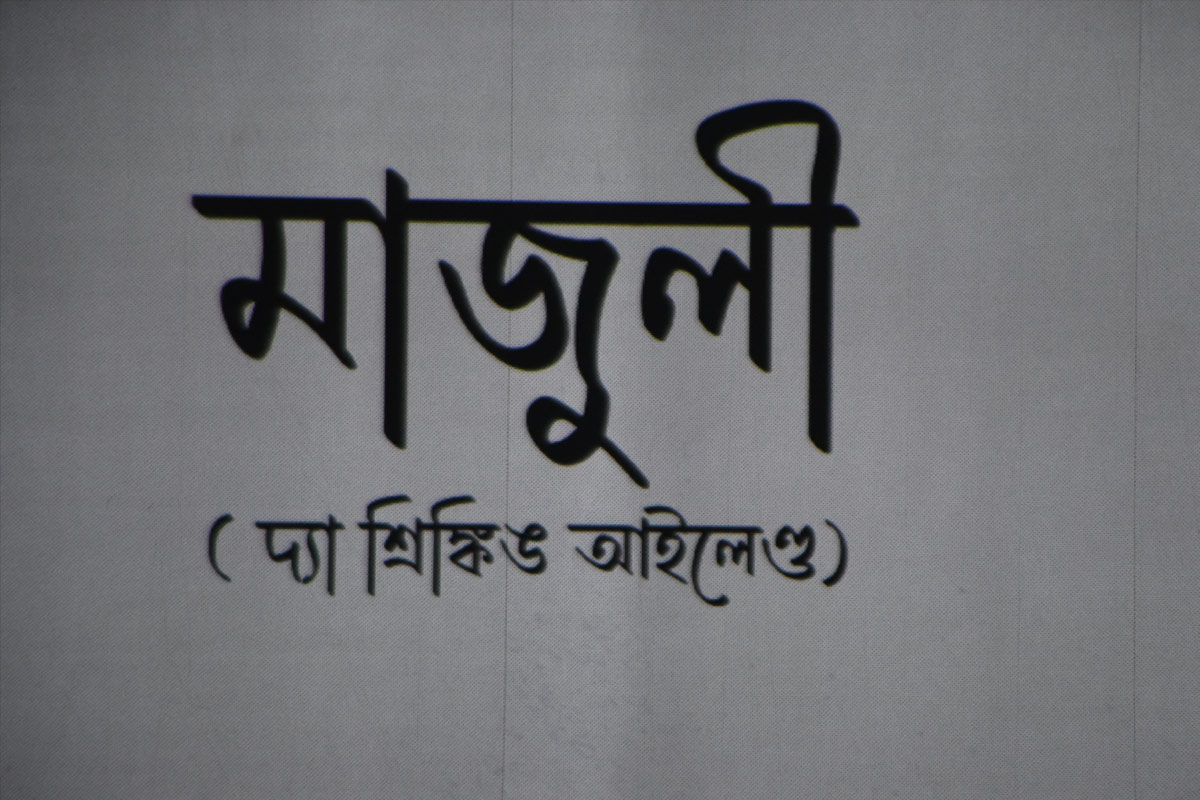 মাজুলী
( দ্যা শ্রিঙ্কিঙ আইলেণ্ড)